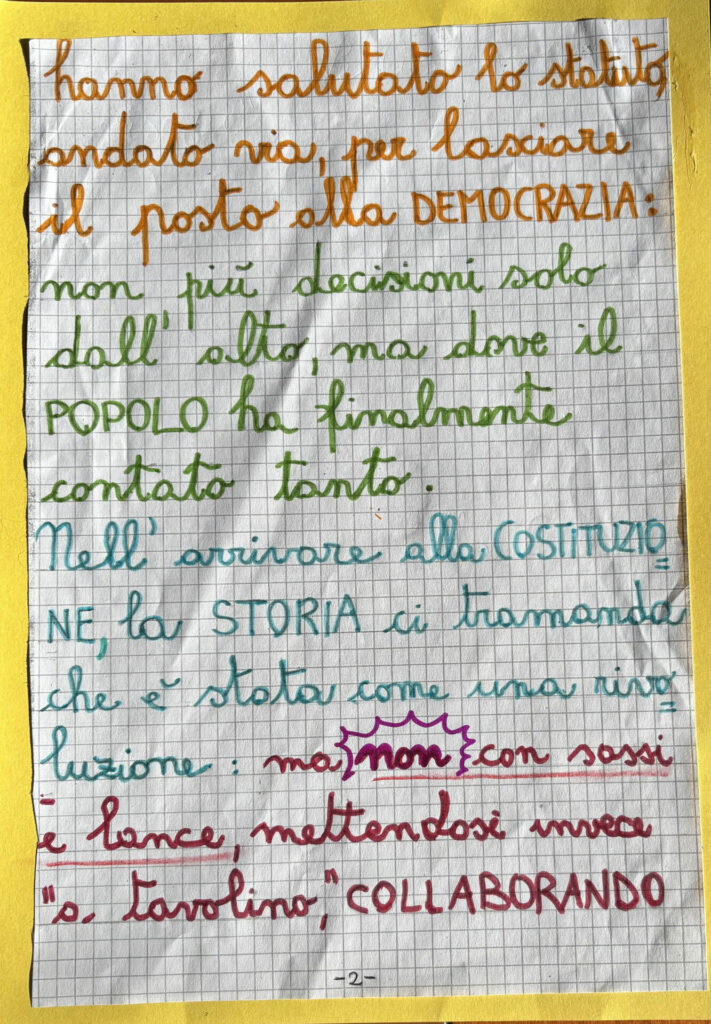 hanno salutato lo statuto,
andato via, per lasciare
il posto alla DEMOCRAZIA:
non più decisioni solo
dall' alto, ma dove il
POPOLO ha finalmente
contato tanto.
Nell' arrivare alla COSTITUZIO
NE, la STORIA ci tramanda
che è stata come una rivo
luzione: ma non con sassi
e lance, mettendosi invece
"a tavolino," COLLABORANDO
-2-